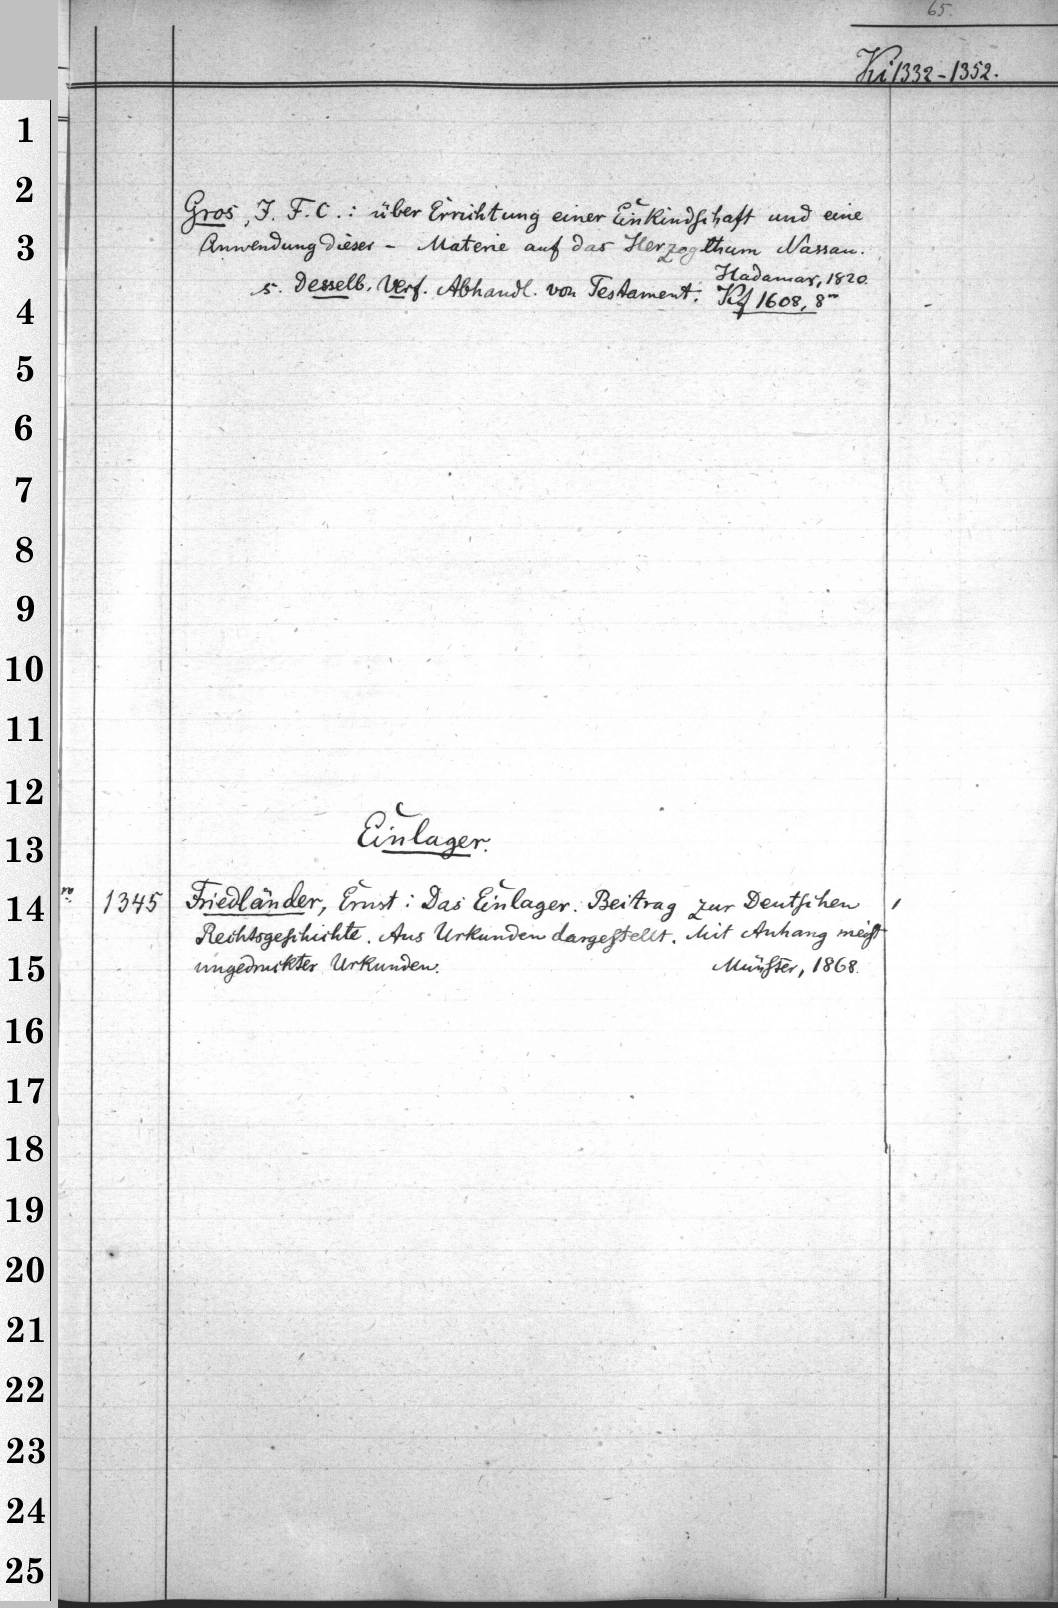 65.
Ki 1332-1352.
1
2
Gros, J. F. C.: über Errichtung einer Einkindschaft und eine
3
Anwendung dieser - Materie auf das Herzogthum Nassau.
Hadamar, 1820.
s. Desselb. Verf. Abhandl. von Testament. Kf 1608, 8°
4
5
6
7
8
9
10
11
12
Einlager.
13
14
ro 1345 Friedländer, Ernst: Das Einlager. Beitrag zur Deutschen 1
Rechtsgeschichte. Aus Urkunden dargestellt. Mit Anhang meist
15
ungedruckter Urkunden. Münster, 1868.
16
17
18
19
20
21
22
23
24
25